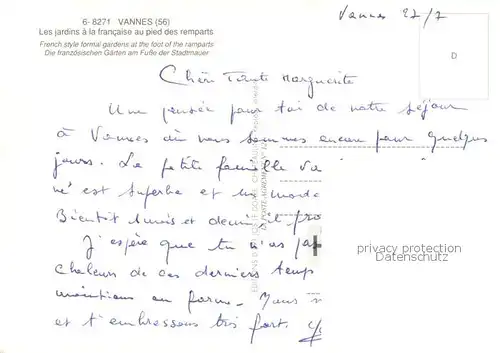 6-8271 VANNES (56)
Les jardins à la française au pied des remparts
French style formal gardens at the foot of the ramparts
Die französischen Gärten am Fuße der Stadtmauer
Vannes 27/7
D
Chère Tante Marguerite
Une pensée pour toi de notre séjour
à Vannes où nous sommes encore pour quelques
jours. La petite famille va
né est superbe et un monde
Bientôt 2 mois et demi, il pro
J'espère que tu n'as pas
chaleur de ces derniers temps
en forme. Nous
et t'embrassons très fort.
privacy protection
Datenschutz